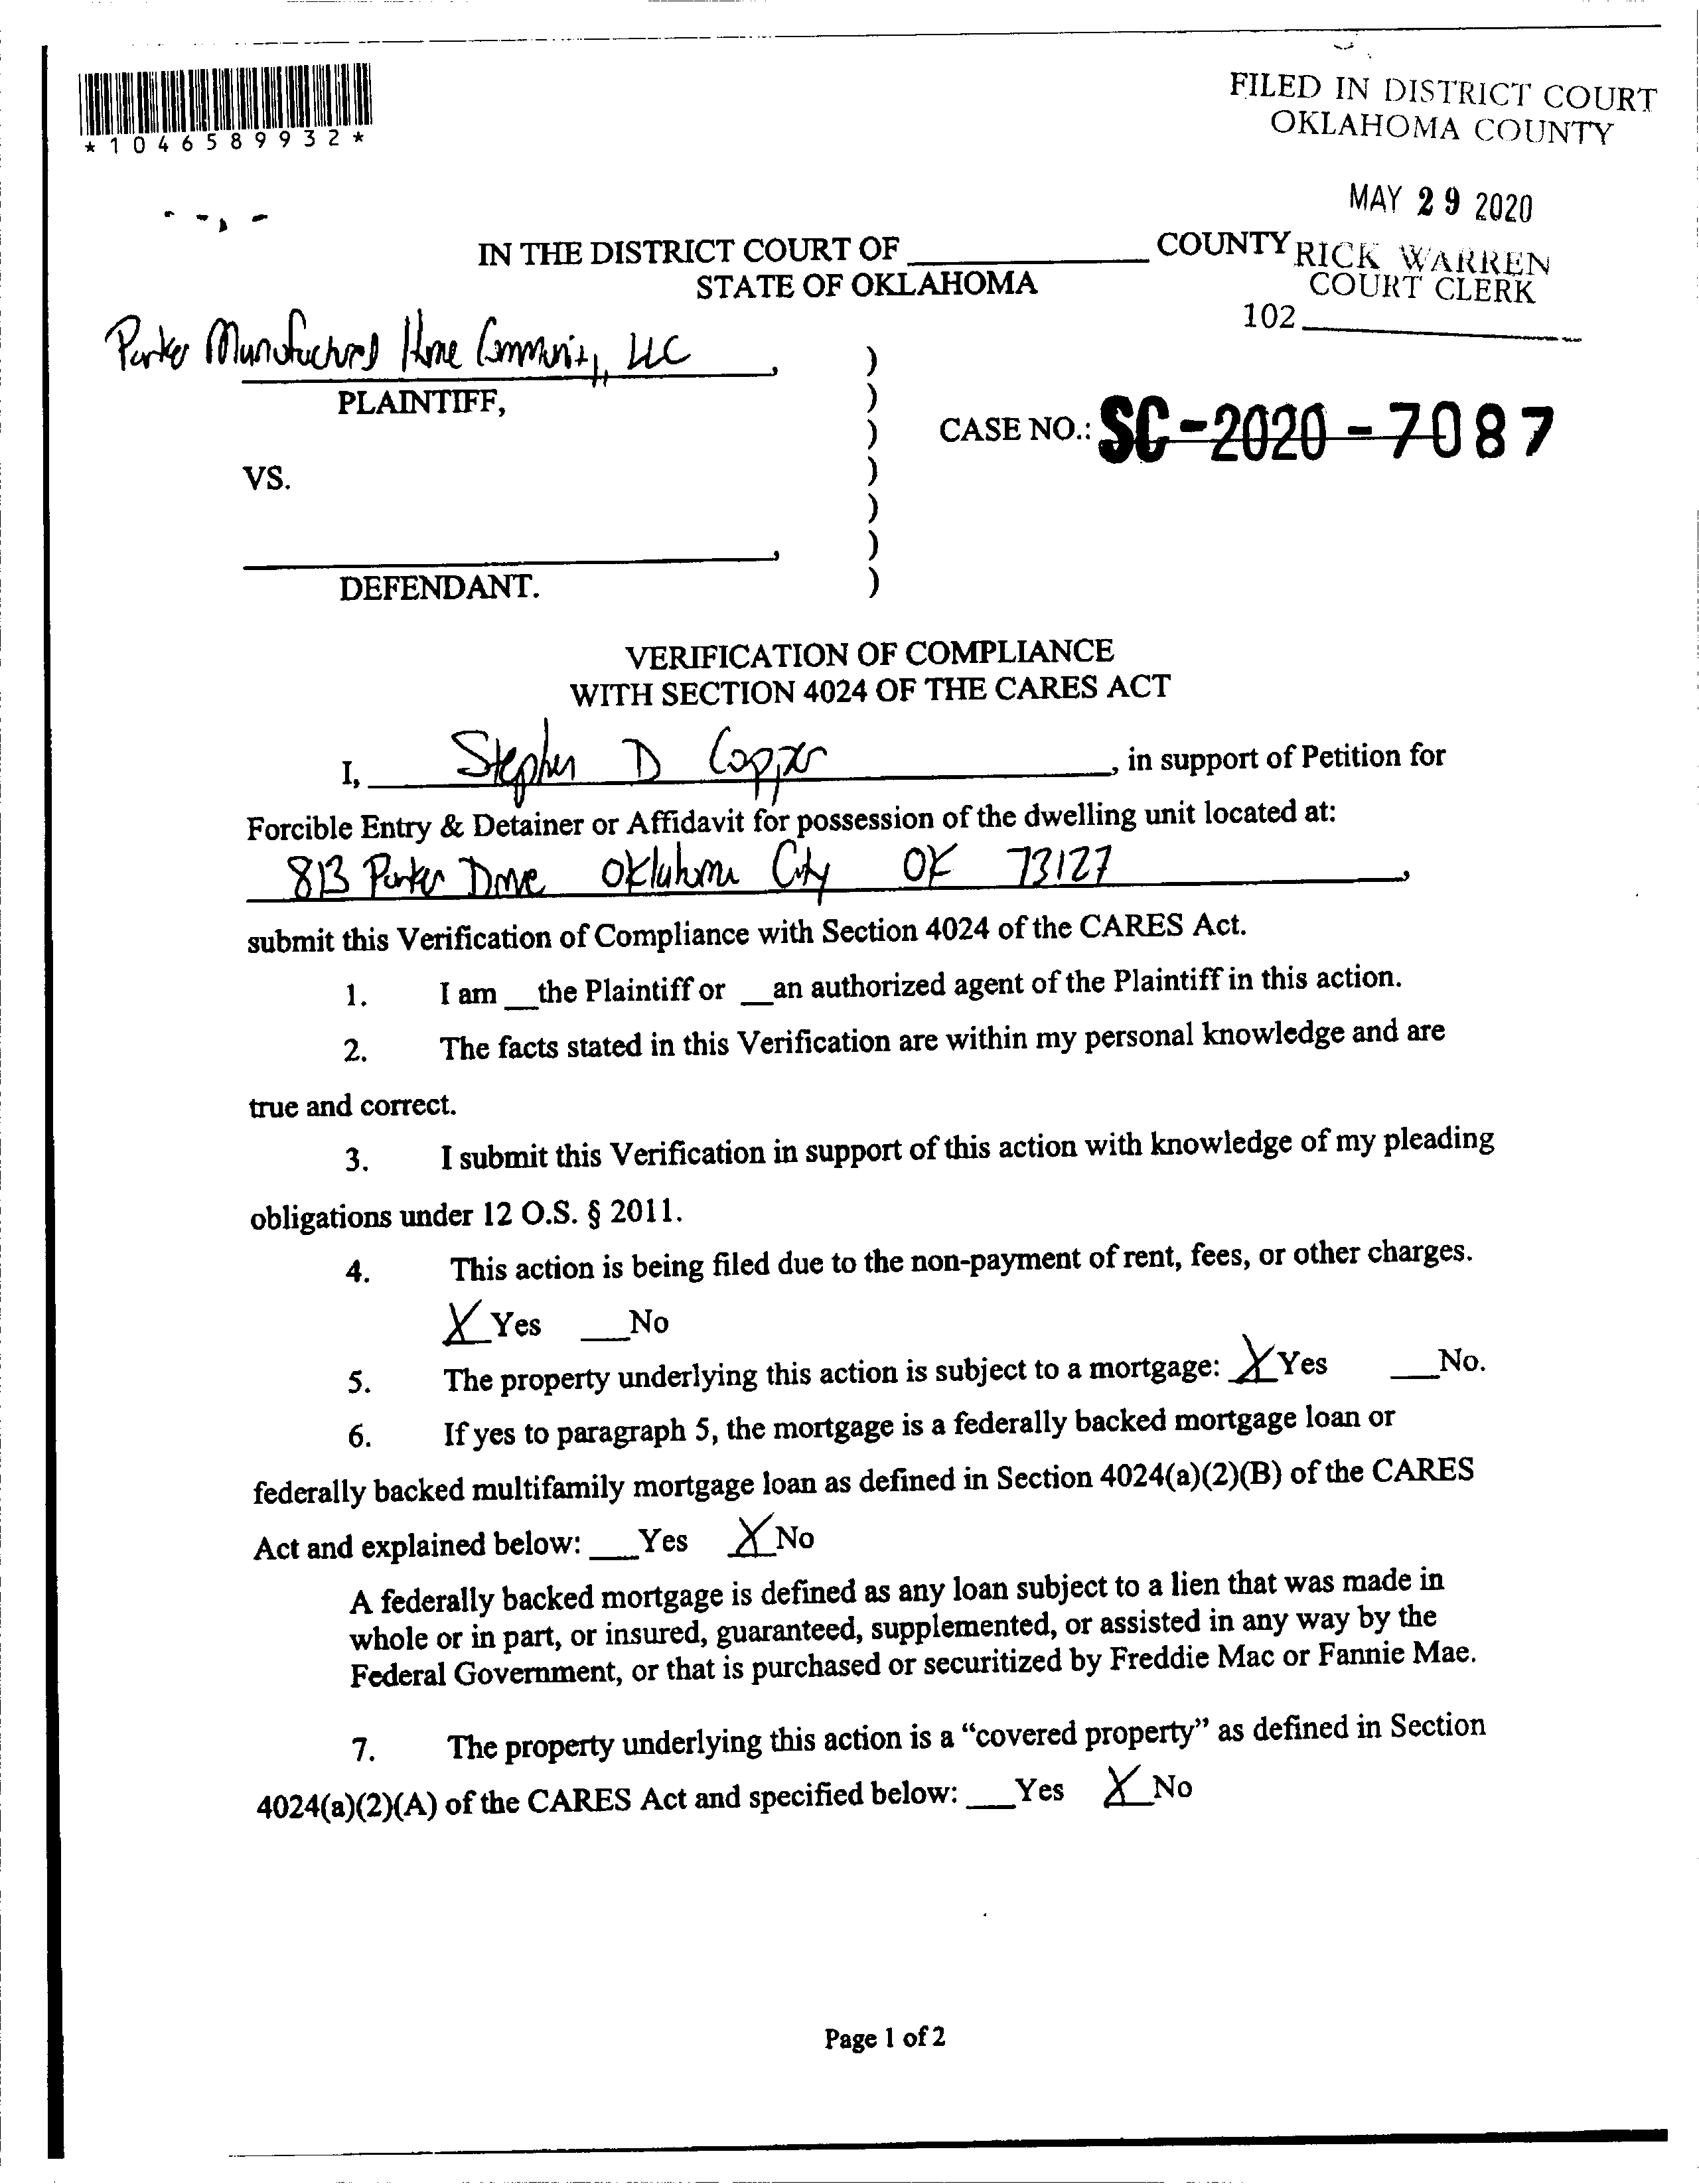 *1046589932*
FILED IN DISTRICT COURT
OKLAHOMA COUNTY
MAY 29 2020
RICK WARREN
COURT CLERK
102
IN THE DISTRICT COURT OF ____________ COUNTY
STATE OF OKLAHOMA
Parker Manufactured Home Community, LLC,
PLAINTIFF,
CASE NO.: SC-2020-7087
VS.
____________,
DEFENDANT.
VERIFICATION OF COMPLIANCE
WITH SECTION 4024 OF THE CARES ACT
I, Stephen D, in support of Petition for
Forcible Entry & Detainer or Affidavit for possession of the dwelling unit located at:
813 Parker Drive Oklahoma City OK 73127,
submit this Verification of Compliance with Section 4024 of the CARES Act.
1. I am __the Plaintiff or __an authorized agent of the Plaintiff in this action.
2. The facts stated in this Verification are within my personal knowledge and are
true and correct.
3. I submit this Verification in support of this action with knowledge of my pleading
obligations under 12 O.S. § 2011.
4. This action is being filed due to the non-payment of rent, fees, or other charges.
X Yes ___No
5. The property underlying this action is subject to a mortgage: X Yes ___No.
6. If yes to paragraph 5, the mortgage is a federally backed mortgage loan or
federally backed multifamily mortgage loan as defined in Section 4024(a)(2)(B) of the CARES
Act and explained below: ___Yes X No
A federally backed mortgage is defined as any loan subject to a lien that was made in
whole or in part, or insured, guaranteed, supplemented, or assisted in any way by the
Federal Government, or that is purchased or securitized by Freddie Mac or Fannie Mae.
7. The property underlying this action is a “covered property” as defined in Section
4024(a)(2)(A) of the CARES Act and specified below: ___Yes X No
Page 1 of 2